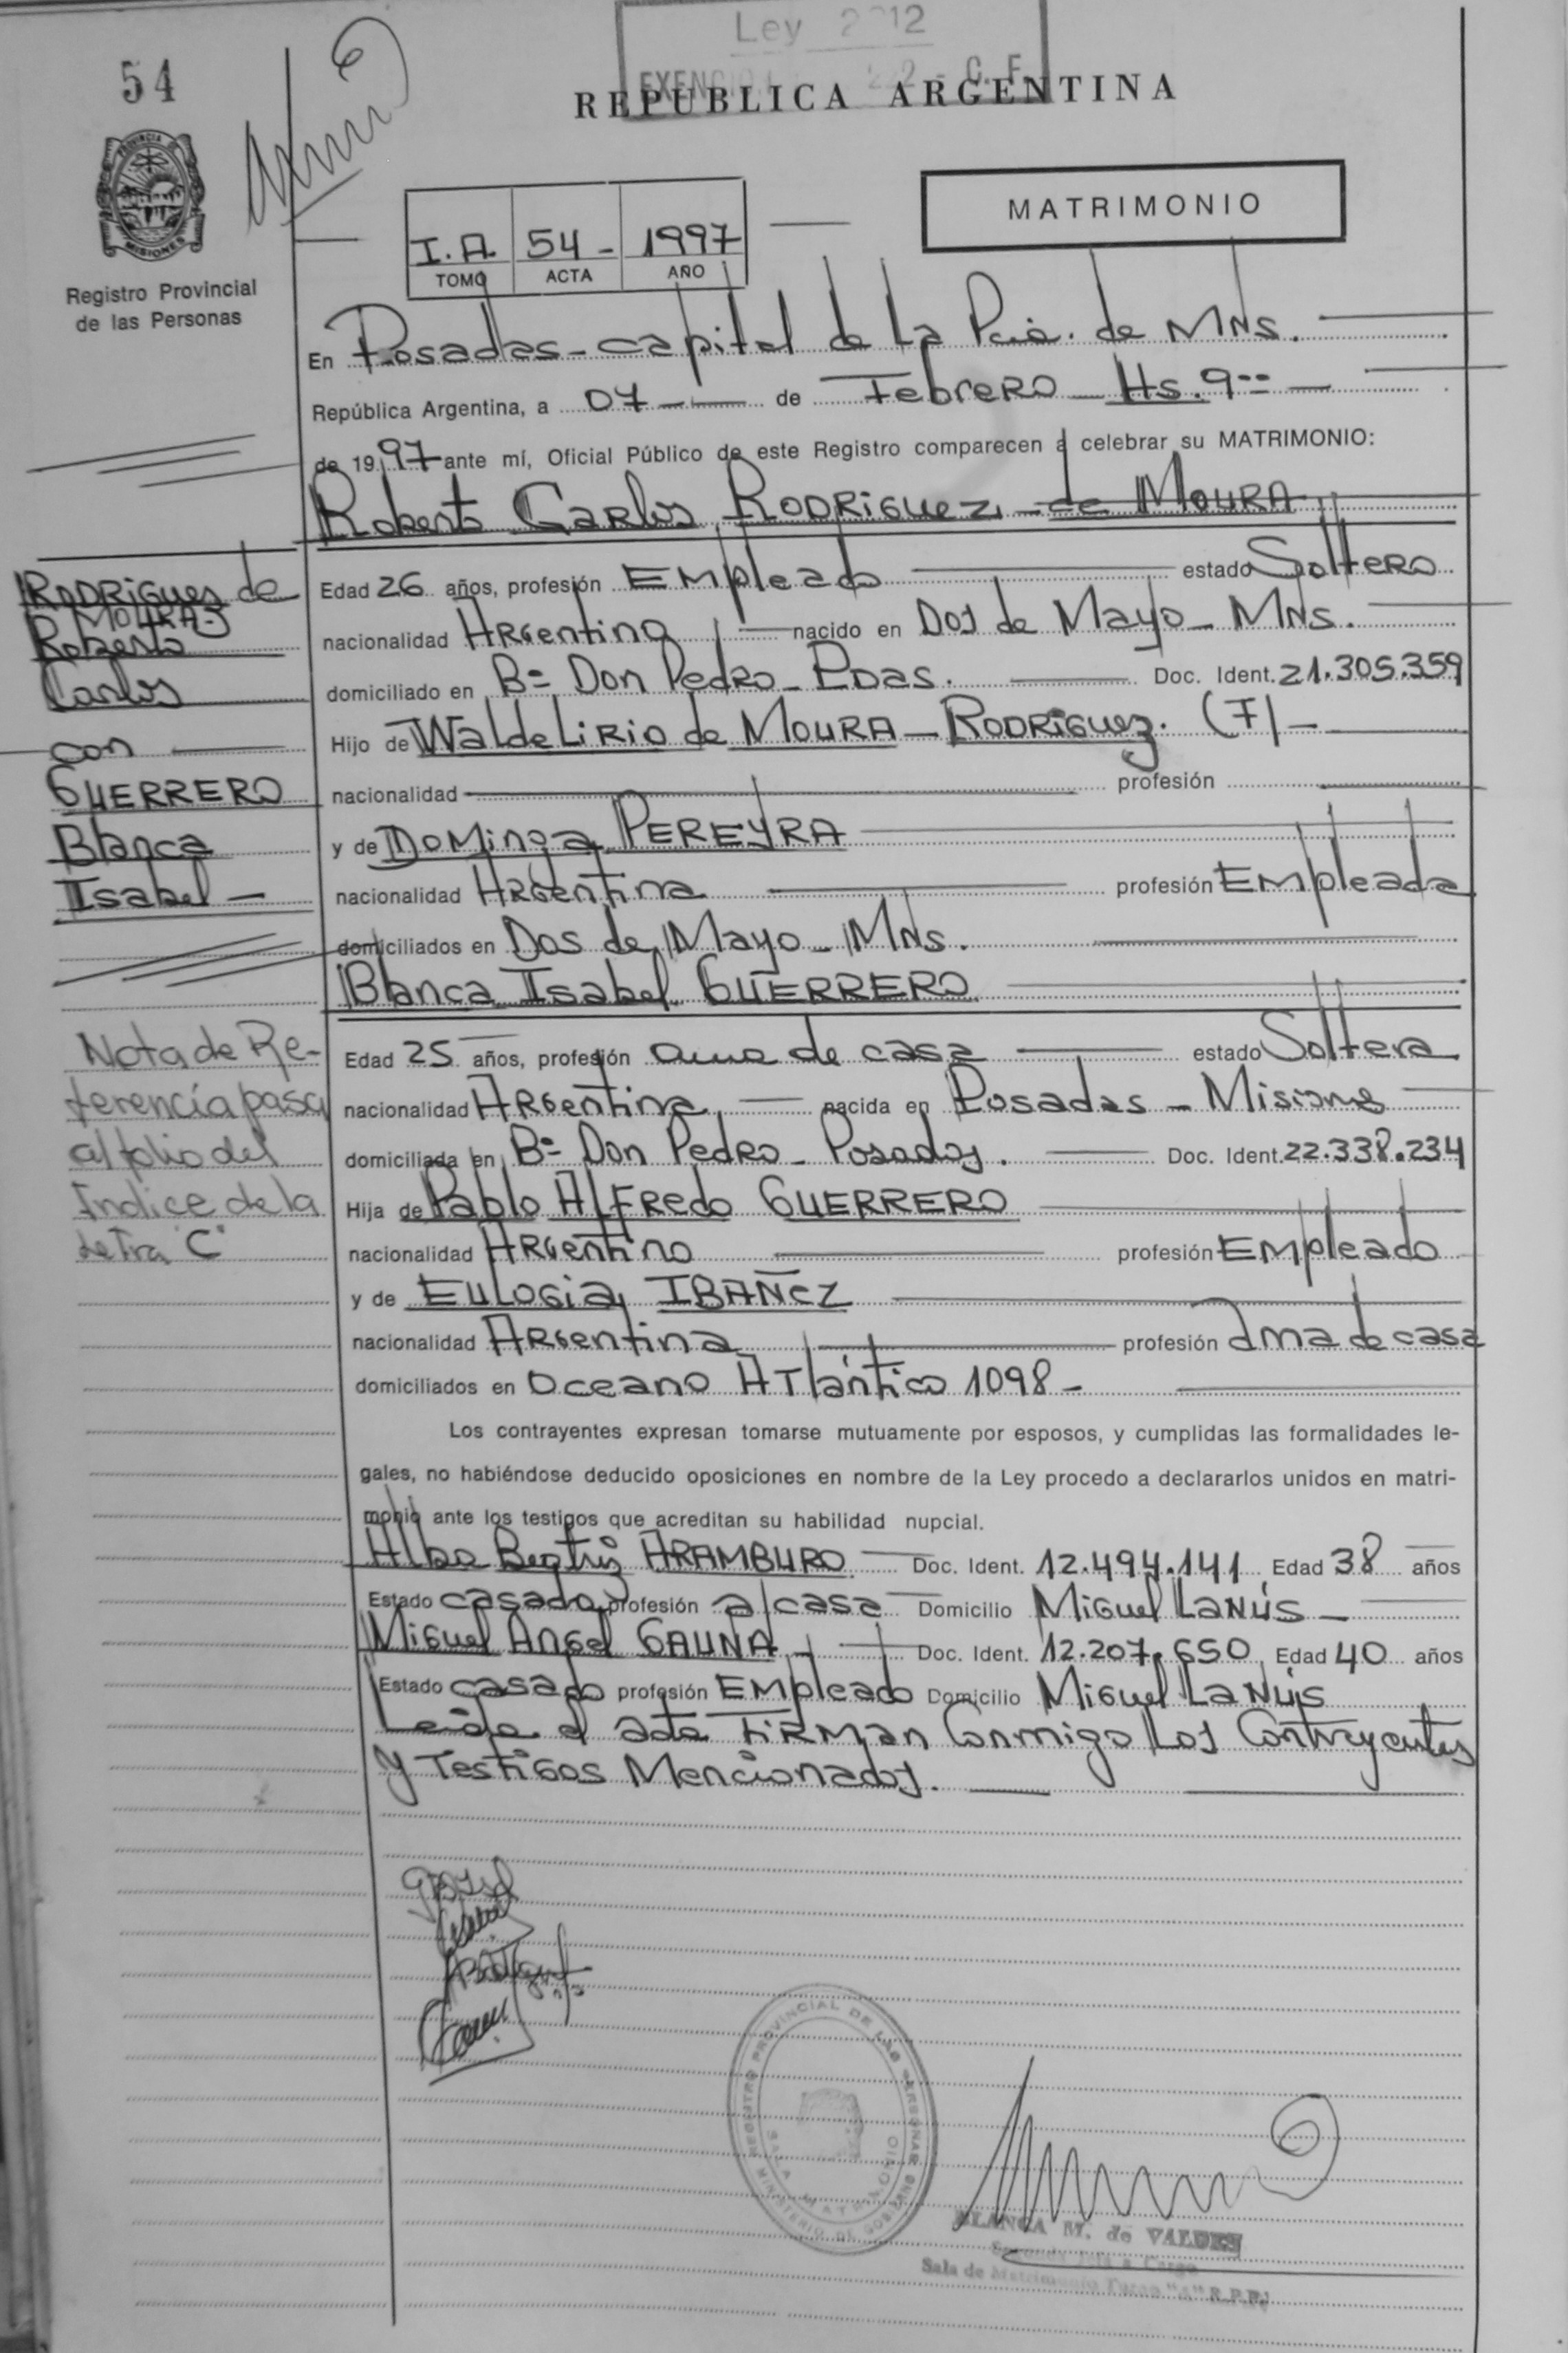 54
Ley 2
REPUBLICA ARGENTINA
PROVINCIA DE
MISIONES
Registro Provincial
de las Personas
MATRIMONIO
I.A. 54 - 1997
TOMO ACTA AÑO
En Posadas - capital de La Pcia. de MNS.
República Argentina, a 07 de Febrero Hs. 9
de 1997 ante mí, Oficial Público de este Registro comparecen a celebrar su MATRIMONIO:
Roberto Carlos RODRIGUEZ de MOURA
Edad 26 años, profesión Empleado estado Soltero
nacionalidad Argentino nacido en Dos de Mayo - MNS.
domiciliado en Bº Don Pedro - Pdas. Doc. Ident. 21.305.359
Hijo de WaldeLirio de MOURA - RODRIGUEZ. (F) -
nacionalidad profesión
y de Dominga PEREYRA
nacionalidad Argentina profesión Empleada
domiciliados en Dos de Mayo - MNS.
Blanca Isabel GUERRERO
Edad 25 años, profesión ama de casa estado Soltera
nacionalidad Argentina nacida en Posadas - Misiones
domiciliada en Bº Don Pedro - Posadas. Doc. Ident. 22.338.234
Hija de Pablo Alfredo GUERRERO
nacionalidad Argentino profesión Empleado
y de Eulogia IBAÑEZ
nacionalidad Argentina profesión ama de casa
domiciliados en Oceano Atlántico 1098 -
Los contrayentes expresan tomarse mutuamente por esposos, y cumplidas las formalidades le-
gales, no habiéndose deducido oposiciones en nombre de la Ley procedo a declararlos unidos en matri-
monio ante los testigos que acreditan su habilidad nupcial.
Alba Beatriz ARAMBURO Doc. Ident. 12.494.141 Edad 38 años
Estado casada profesión a/casa Domicilio Miguel Lanús -
Miguel Angel GAUNA - Doc. Ident. 12.207.650 Edad 40 años
Estado casado profesión Empleado Domicilio Miguel Lanús
Leída el acta Firman Conmigo Los Contrayentes
y Testigos Mencionados.
RODRIGUES de
MOURA
Roberto
Carlos
con
GUERRERO
Blanca
Isabel -
Nota de Re-
ferencia pasa
al folio del
Indice de la
Letra "C"
REGISTRO PROVINCIAL DE LAS PERSONAS
SALA MATRIMONIO
MINISTERIO DE GOBIERNO
BLANCA M. de VALDES
Sala de Matrimonio Turno "A" R.P.P.